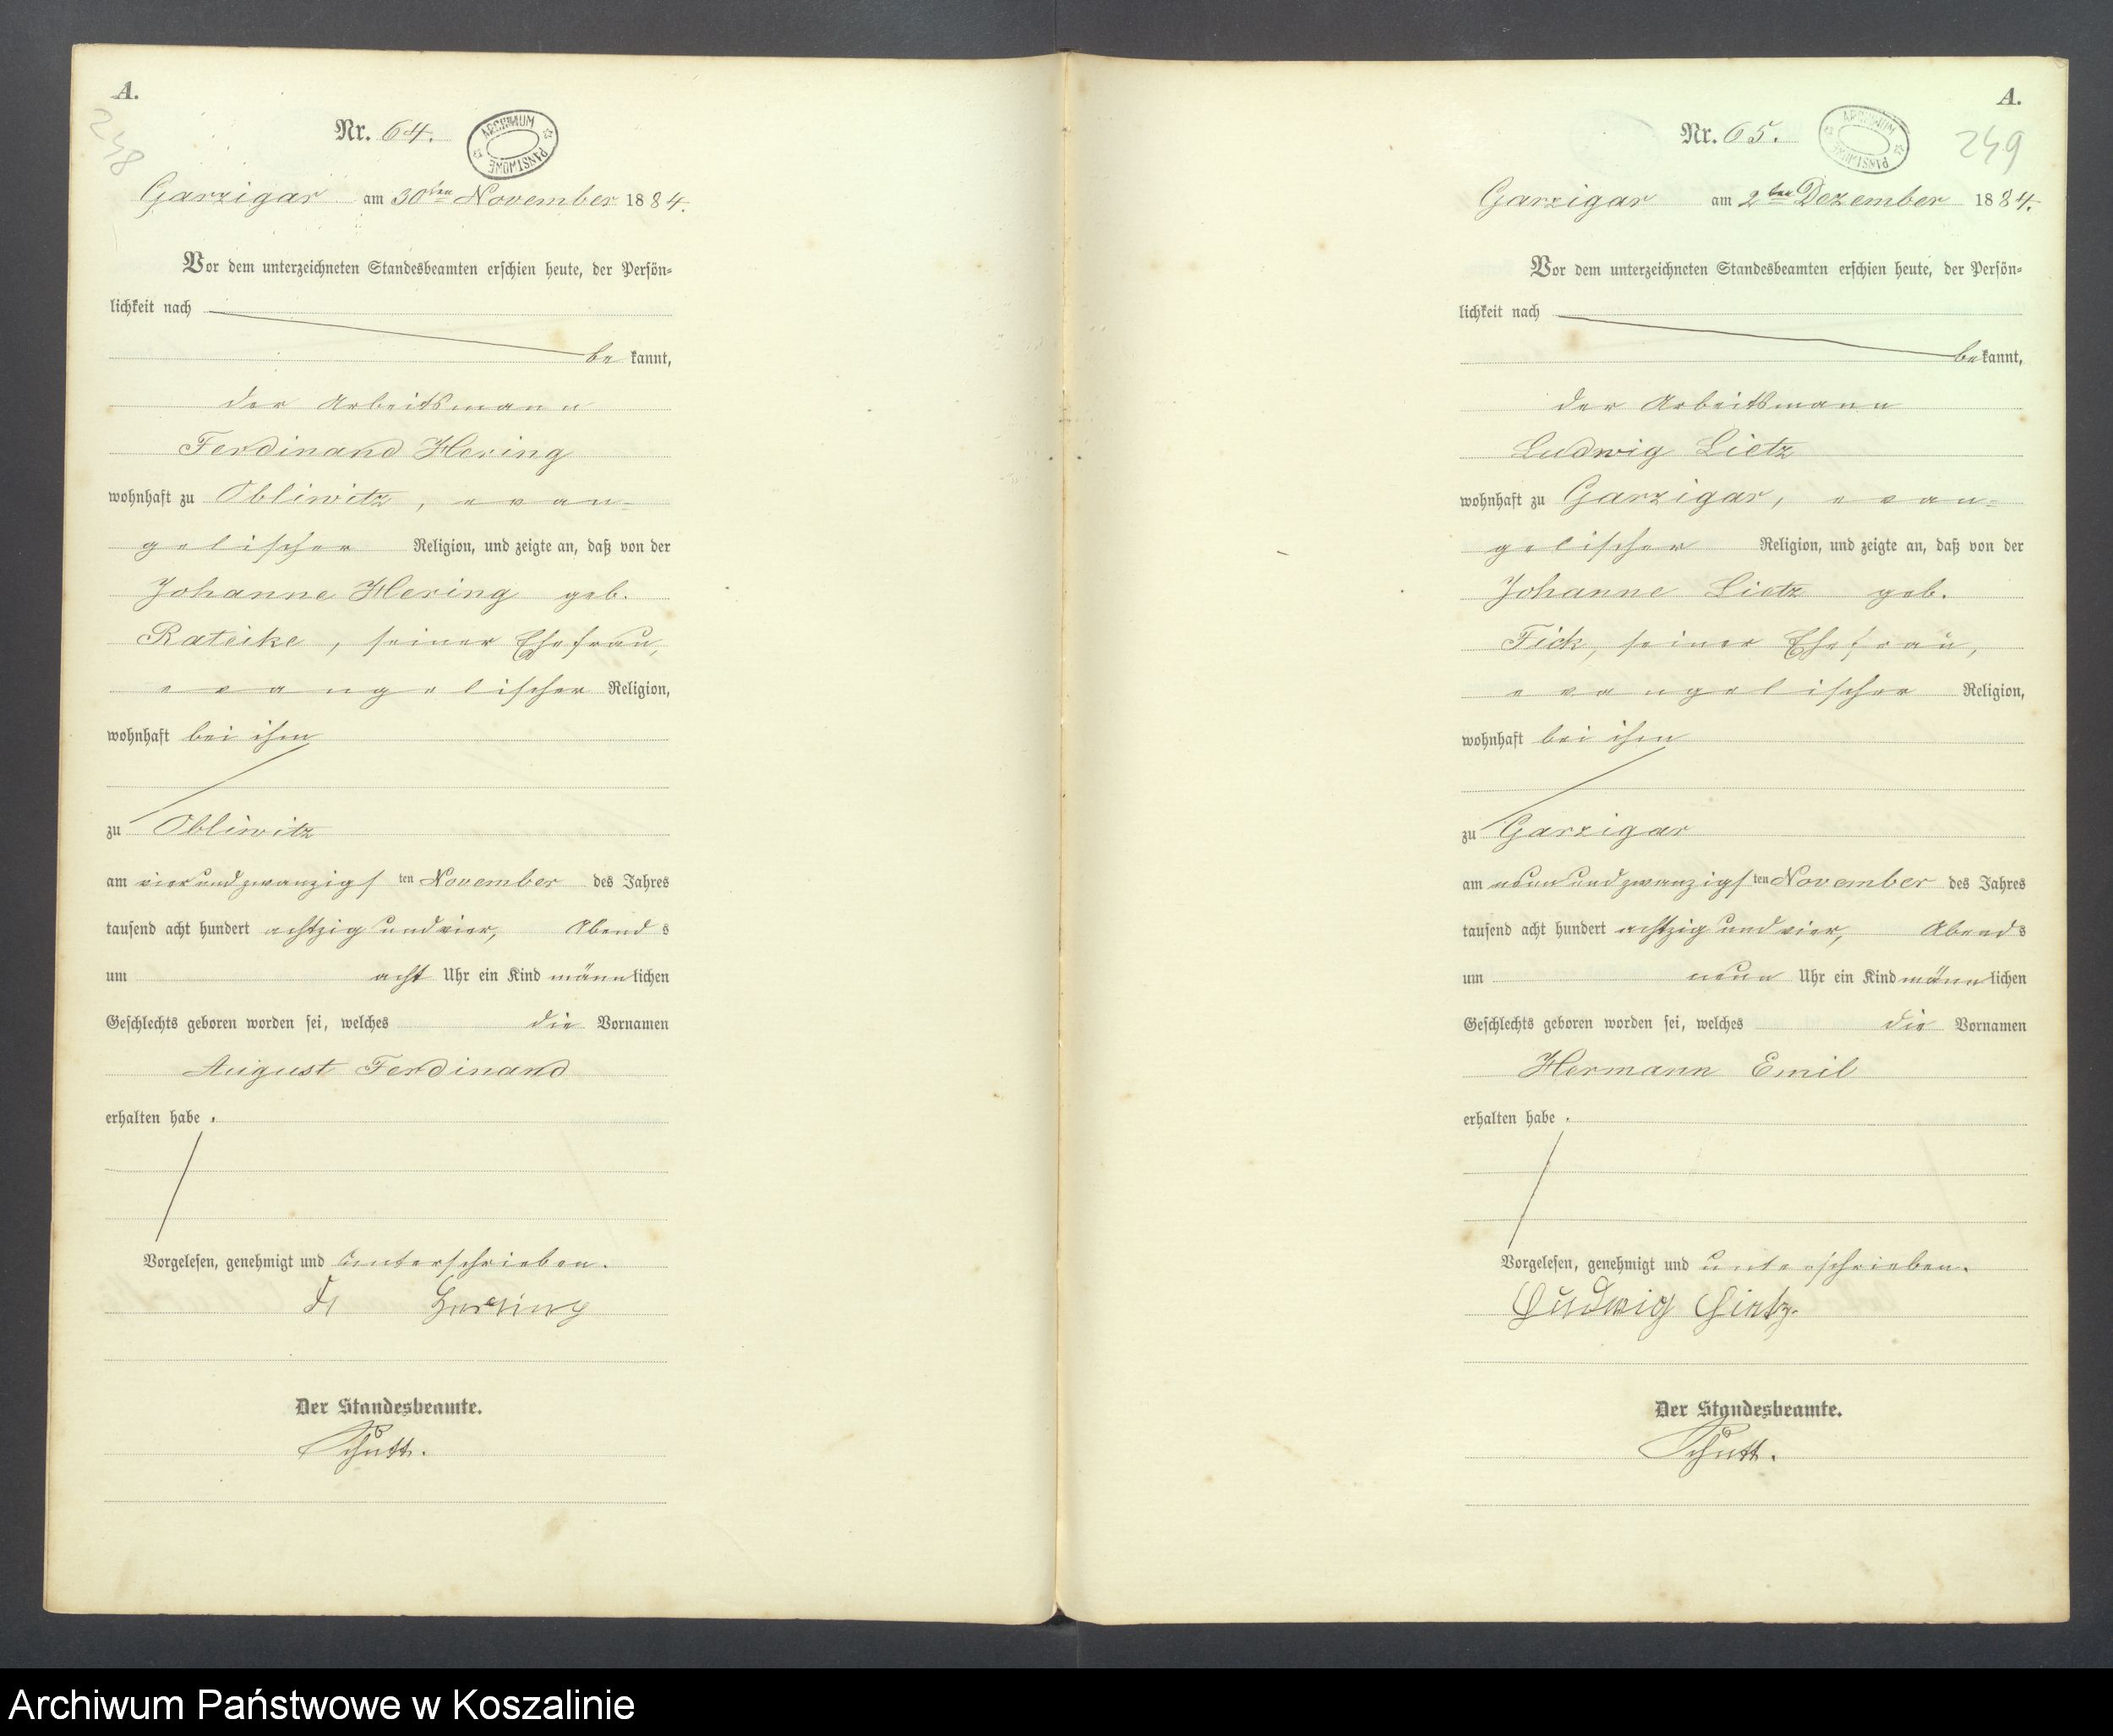 A.
248
Nr. 64.
ARCHIWUM PAŃSTWOWE
Garzigar am 30ten November 1884.
Vor dem unterzeichneten Standesbeamten erschien heute, der Persön-
lichkeit nach
be kannt,
der Arbeitsmann
Ferdinand Hering
wohnhaft zu Obliwitz, evan-
gelischer Religion, und zeigte an, daß von der
Johanne Hering geb.
Rateike, seiner Ehefrau,
evangelischer Religion,
wohnhaft bei ihm
zu Obliwitz
am vierundzwanzigsten November des Jahres
tausend acht hundert achtzig und vier, Abends
um acht Uhr ein Kind männlichen
Geschlechts geboren worden sei, welches die Vornamen
August Ferdinand
erhalten habe.
Vorgelesen, genehmigt und unterschrieben.
Hering
Der Standesbeamte.
Schutt.
A.
249
Nr. 65.
ARCHIWUM PAŃSTWOWE
Garzigar am 2ten Dezember 1884.
Vor dem unterzeichneten Standesbeamten erschien heute, der Persön-
lichkeit nach
bekannt,
der Arbeitsmann
Ludwig Lietz
wohnhaft zu Garzigar, evan-
gelischer Religion, und zeigte an, daß von der
Johanne Lietz geb.
Fick, seiner Ehefrau,
evangelischer Religion,
wohnhaft bei ihm
zu Garzigar
am neunundzwanzigsten November des Jahres
tausend acht hundert achtzig und vier, Abends
um neun Uhr ein Kind männlichen
Geschlechts geboren worden sei, welches die Vornamen
Hermann Emil
erhalten habe.
Vorgelesen, genehmigt und unterschrieben.
Ludwig Lietz.
Der Standesbeamte.
Schutt.
Archiwum Państwowe w Koszalinie